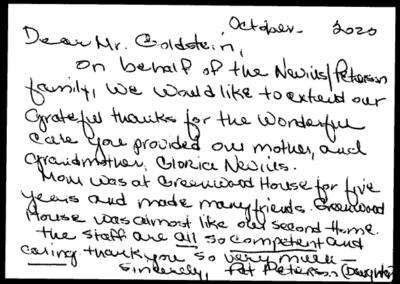 October 2020
Dear Mr. Goldstein,
On behalf of the Nevius/Peterson
family, we would like to extend our
grateful thanks for the wonderful
care you provided our mother, and
grandmother, Gloria Nevius.
Mom was at Greenwood House for five
years and made many friends. Greenwood
House was almost like our second home.
The staff are all so competent and
caring. thank you so very much—
Sincerely, Pat Peterson (Daughter)